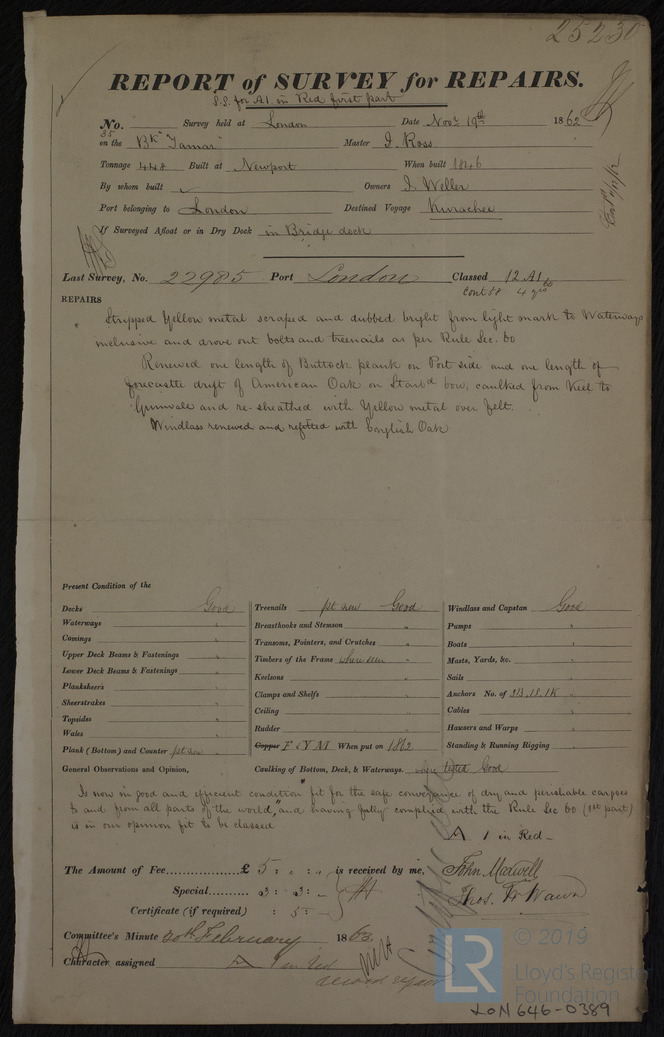 25230
REPORT of SURVEY for REPAIRS.
S.S. for A1 in Red first part
No. Survey held at London Date Novr 19th 1862
35
on the Bk "Tamar" Master J. Ross
Tonnage 448 Built at Newport When built 1846
By whom built Owners J. Weller
Port belonging to London Destined Voyage Kurachee
If Surveyed Afloat or in Dry Dock in Bridge dock
Last Survey, No. 22985 Port London Classed 12 A1
Contd 4 yrs
REPAIRS
Stripped Yellow metal scraped and dubbed bright from light mark to Waterways
inclusive and drove out bolts and treenails as per Rule Sec. 60
Renewed one length of Buttock plank on Port side and one length of
forecastle drift of American Oak on Starbd bow, caulked from Keel to
Gunwale and re-sheathed with Yellow metal over felt.
Windlass renewed and refitted with English Oak
Present Condition of the
Decks Good
Waterways "
Comings "
Upper Deck Beams & Fastenings "
Lower Deck Beams & Fastenings "
Planksheers "
Sheerstrakes "
Topsides "
Wales "
Plank (Bottom) and Counter pt new "
Treenails pt new Good
Breasthooks and Stemson "
Transoms, Pointers, and Crutches "
Timbers of the Frame where seen "
Keelsons "
Clamps and Shelfs "
Ceiling "
Rudder "
Copper F & Y M When put on 1862
Windlass and Capstan Good
Pumps "
Boats "
Masts, Yards, &c. "
Sails "
Anchors No. of 3B. 1S. 1K "
Cables "
Hawsers and Warps "
Standing & Running Rigging "
General Observations and Opinion, Caulking of Bottom, Deck, & Waterways. where tested Good
Is now in good and efficient condition "fit for the safe conveyance of dry and perishable cargoes
to and from all parts of the world," and having fully complied with the Rule Sec 60 (1st part)
is in our opinion fit to be classed
A 1 in Red
The Amount of Fee £ 5 : " : " is received by me,
John Maxwell
Special 3 : 3 : "
Thos. W Wawn
Certificate (if required) : 5 :
Committee's Minute 20th February 1863
Character assigned A 1 in Red
© 2019
LR
Lloyd's Register
Foundation
LON 646-0389